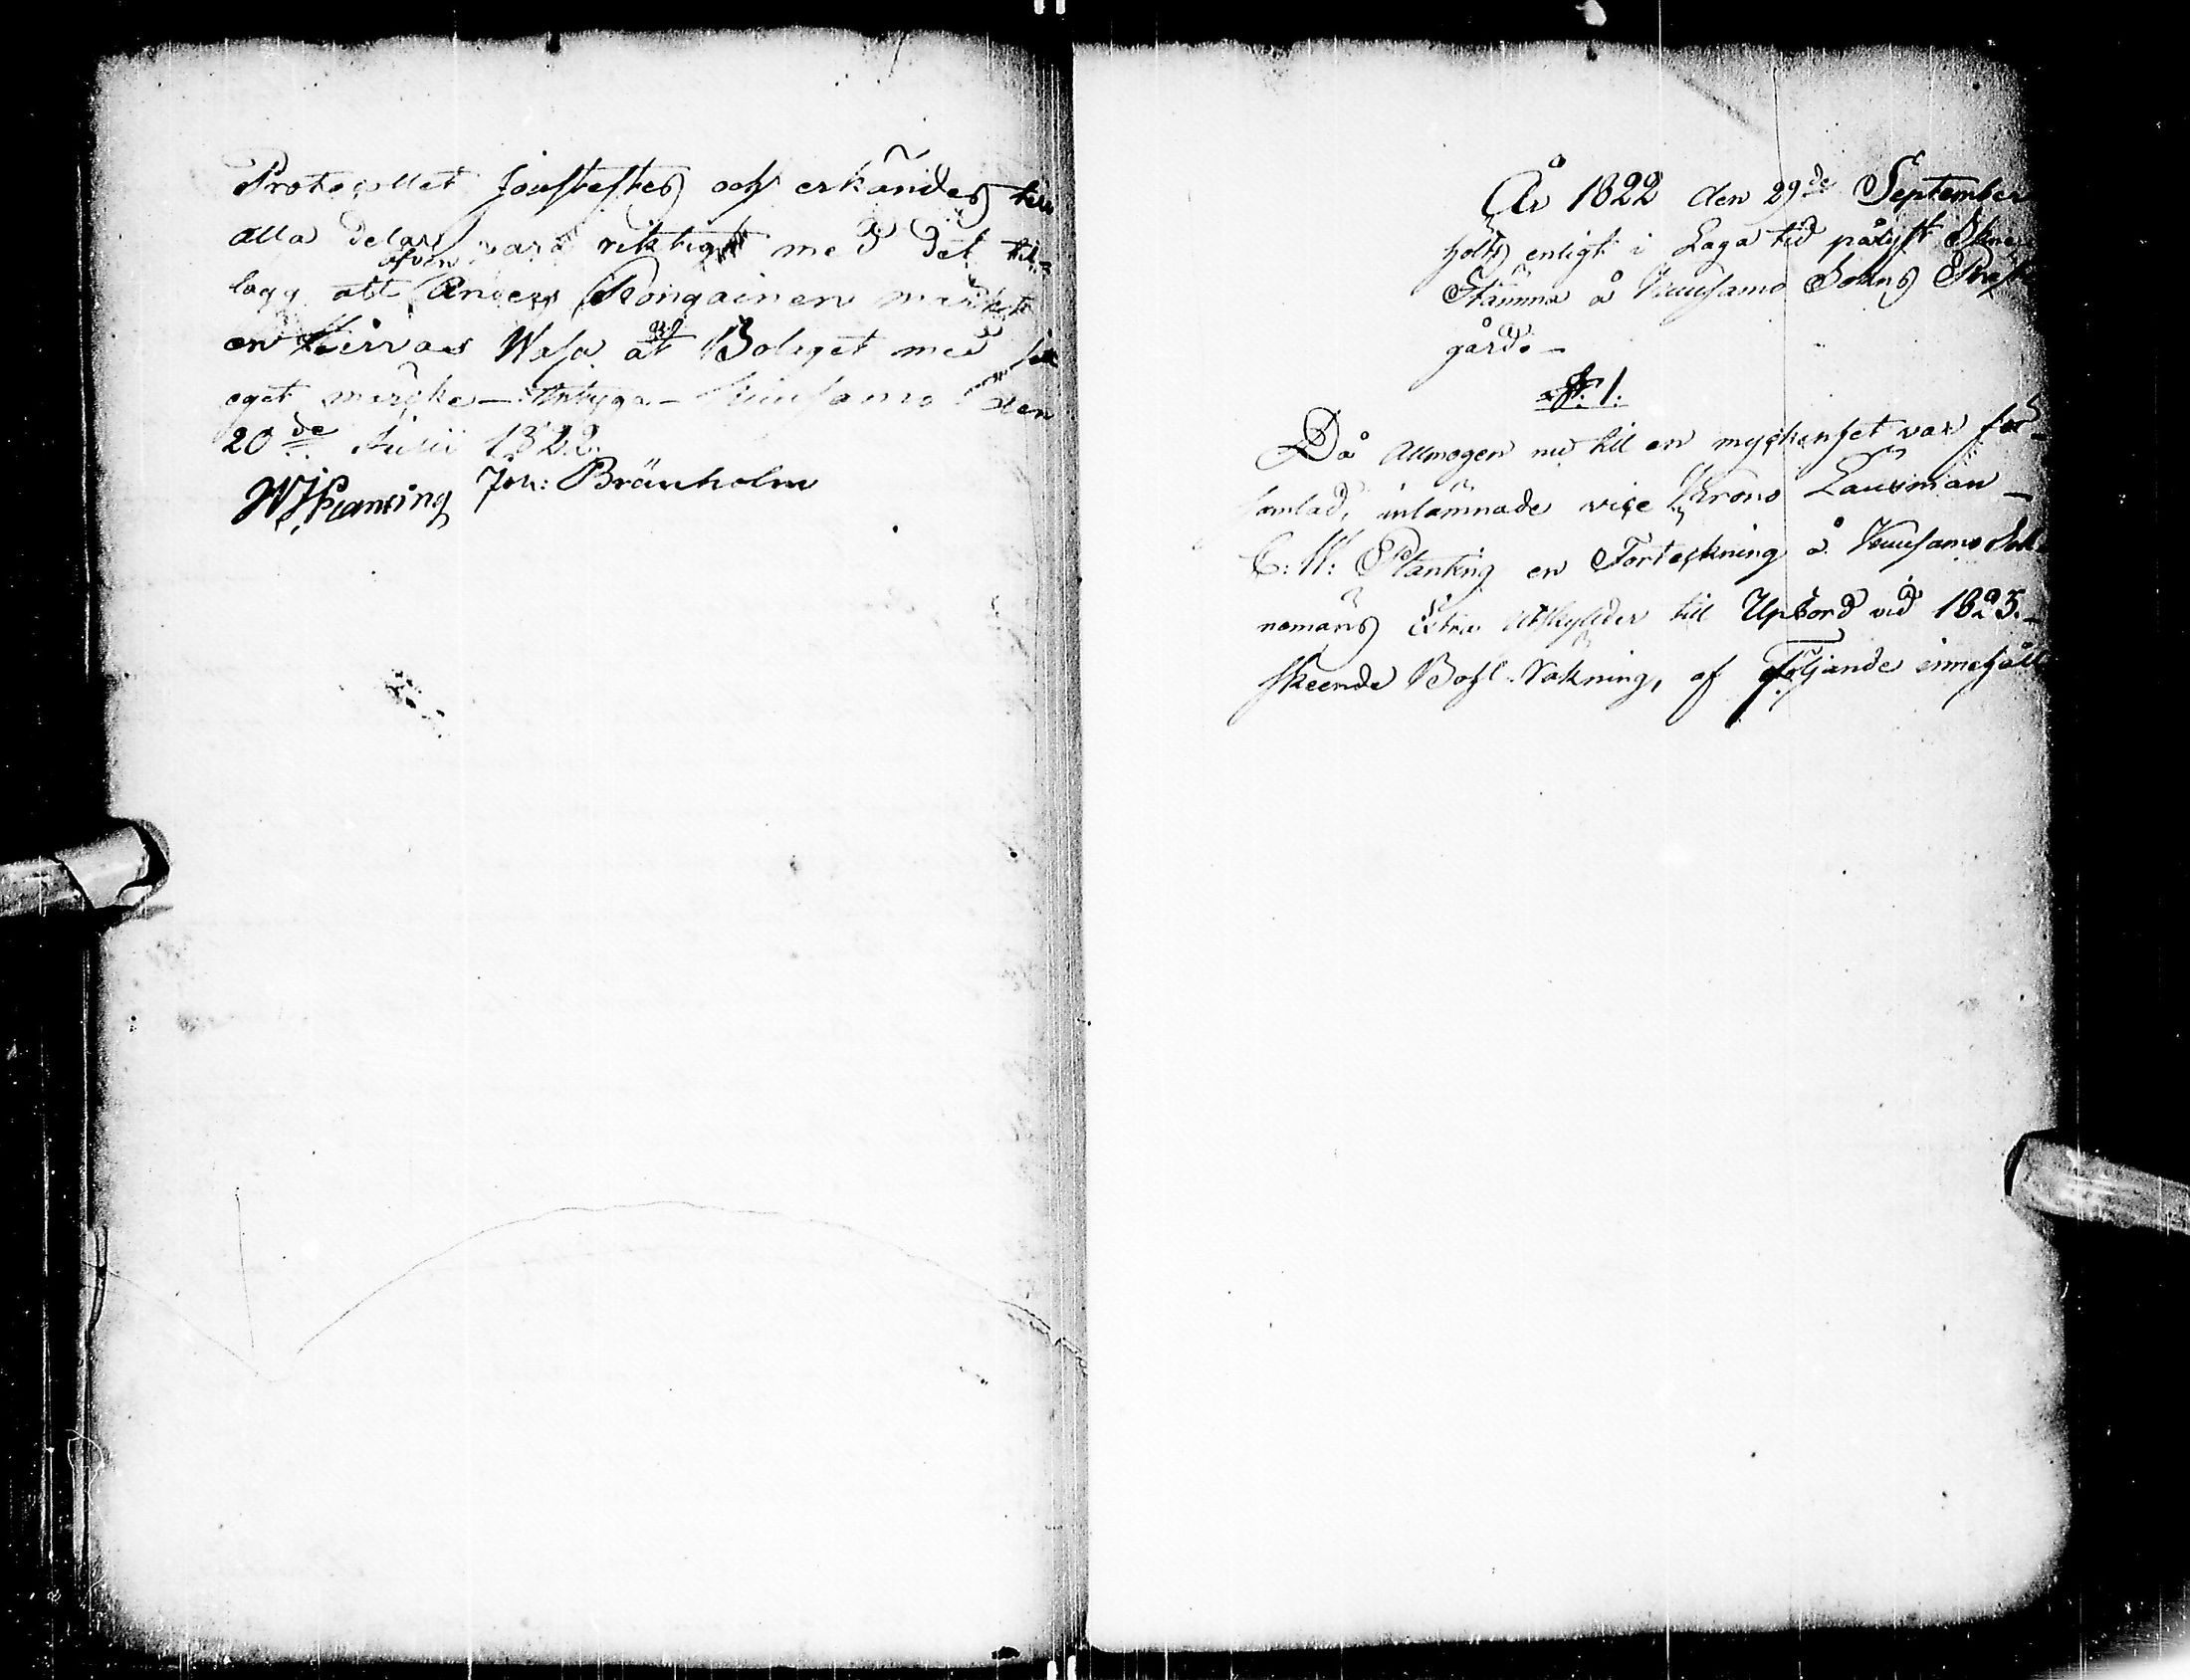 Protocollet justeftes och erkändes till
alla delar vara riktigt med det til-
lägg att äfven Anders Kongainen
en Hirvas Wasa åt Bolaget med
eget märke — Betyga — Kuusamo den
20de Julii 1822.
Planting Joh: Bränholm
År 1822 den 29de September
holts enligt i Laga tid pålyst Sokne
Stämma å Kuusamo Sokns Prest
gård. —
§. 1.
Då Allmogen nu till en myckenhet var för-
samlad, inlämnade vice Krono Länsman —
C: W: Planting en Förteckning å Kuusamo Sok
nemäns Extra Utskylder till Upbörd vid 1823. —
skeende Bohl. Vakning, af följande innehåll